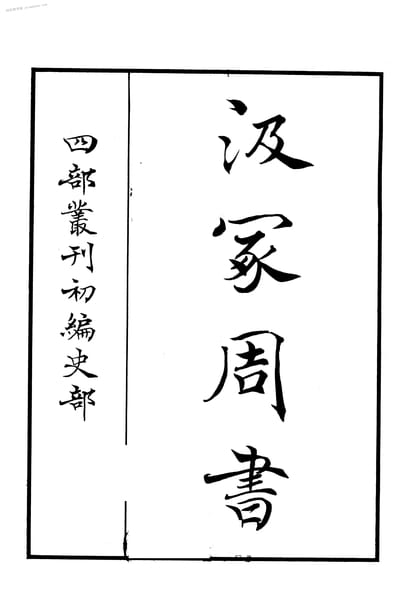 汲冢周書
四部叢刊初編史部